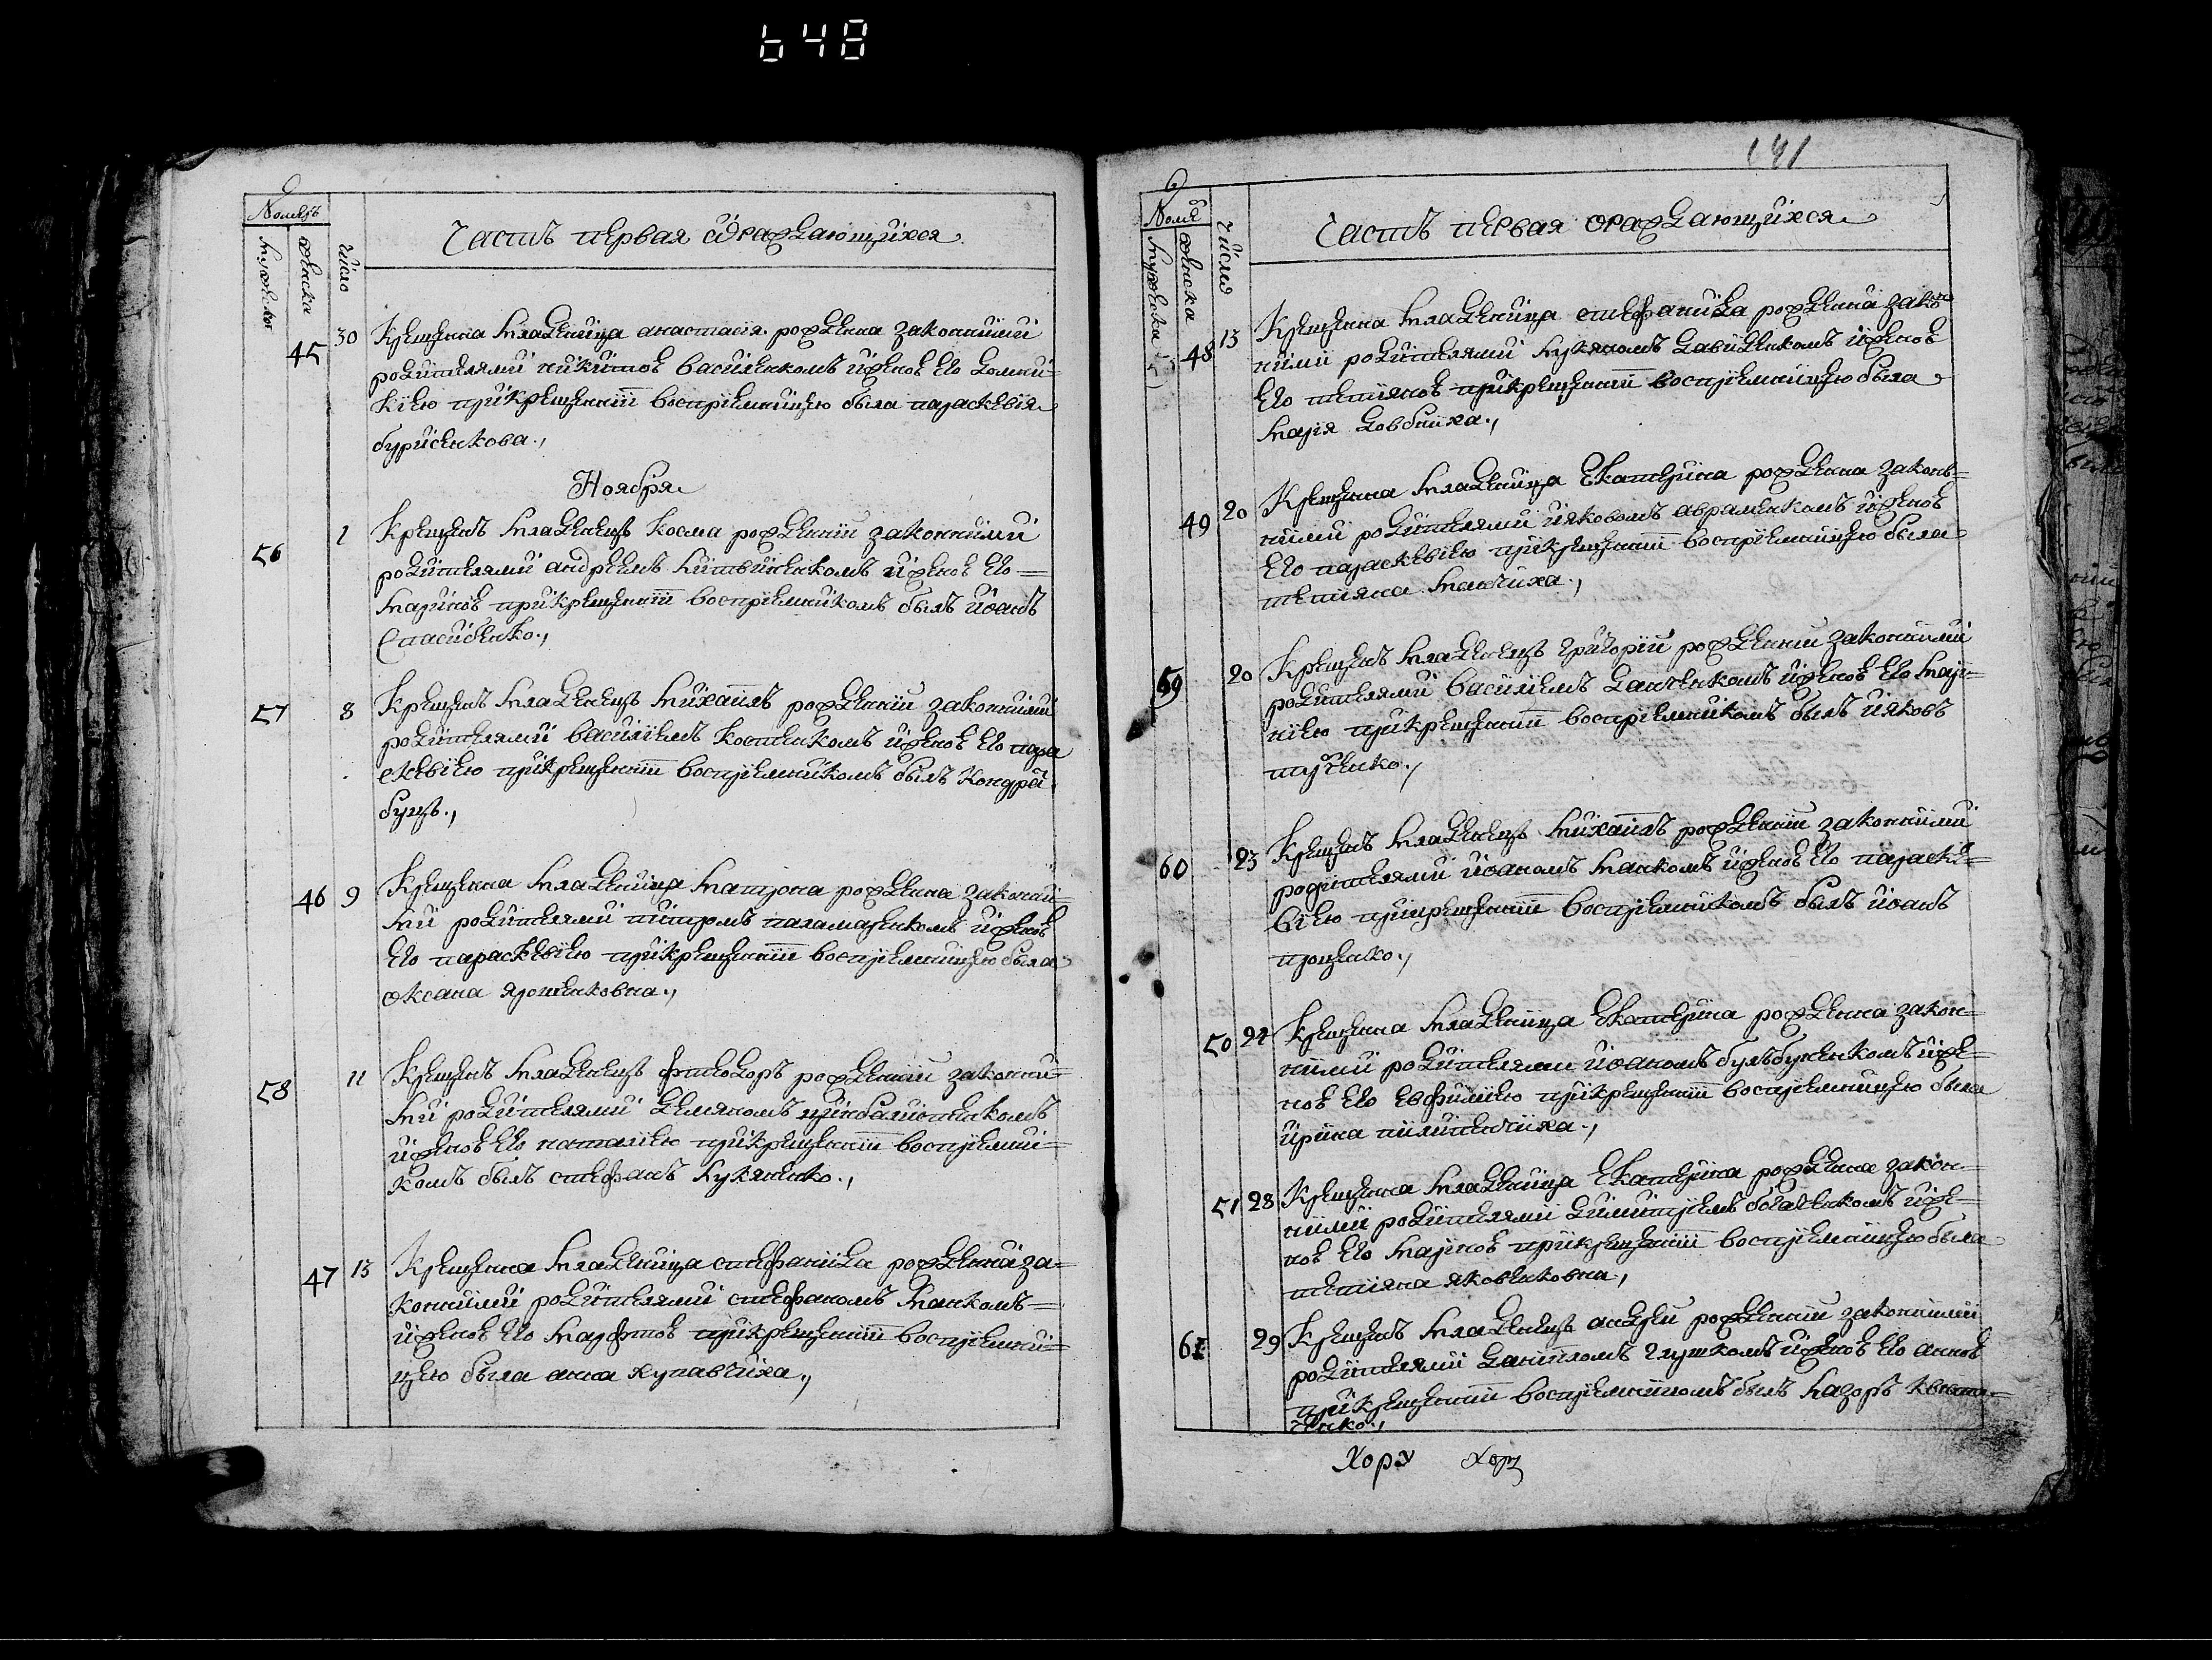 648
Номеръ
мужеска
женска
число
Часть первая ѡраждающихся
45 30 Крещена младеница анастасія рождена законними
родителями никитою василенкомъ ижено его домни-
кією прикрещеніи воспріемницею была параскевія
бурисенкова.,
Ноября
56 1 Крещенъ младенецъ косма рожденій законними
родителями андреемъ литвиненкомъ ижено его =
мариною прикрещеніи воспріемникомъ былъ иѡанъ
Спасибенко.,
57 8 Крещенъ младенецъ михаилъ рожденій законними
родителями василіемъ костенкомъ ижено его пара
скевією прикрещеніи воспріемникомъ былъ кондра
буцъ.,
46 9 Крещена младеница матрона рождена законни=
ми родителями питромъ паламаренкомъ ижено
его параскевією прикрещеніи воспріемницею была
ѡксана ярошенковна.,
58 11 Крещенъ младенецъ фтеодоръ рожденій законни=
ми родителями демяномъ цимбалистенкомъ
ижено его наталією прикрещеніи воспріемни=
комъ былъ стефанъ лукяненко.,
47 13 Крещена младеница стефанида рождена за=
конними родителями стефаномъ манкомъ =
ижено его марфтою прикрещеніи воспріемни=
цею была анна журавчиха.,
141
Номе
мужеска
женска
число
Часть первая ораждающихся
48 13 Крещена младеница стефанида рождена закон
ними родителями лукяномъ давиденкомъ ижено
его тетіяною прикрещеніи воспріемницею была
марія довбниха.,
49 20 Крещена младеница екатерина рождена закон=
ними родителями ияковомъ авраменкомъ ижено
его параскевією прикрещеніи воспріемницею была
тетіяна манчиха.,
59 20 Крещенъ младенецъ григорій рожденій законними
родителями василіемъ данченкомъ ижено его мари=
нією прикрещеніи воспріемникомъ былъ ияковъ
60 23 Крещенъ младенецъ михаилъ рожденій законними
родителями иѡаномъ манкомъ ижено его параске=
вією прикрещеніи воспріемникомъ былъ иѡанъ
проценко.,
50 24 Крещена младеница екатерина рождена закон=
ними родителями иѡаномъ бульбуненкомъ иже=
но его евфимією прикрещеніи воспріемницею была
ирина пилипенчиха.,
51 28 Крещена младеница екатерина рождена закон=
ними родителями димитріемъ богатенкомъ иже=
но его мариною прикрещеніи воспріемницею была
тетіяна яковенковна,
61 29 Крещенъ младенецъ андрей рожденій законними
родителями даниіломъ глушкомъ ижено его анною
прикрещеніи воспріемникомъ былъ назоръ
ченко.,
Хорх